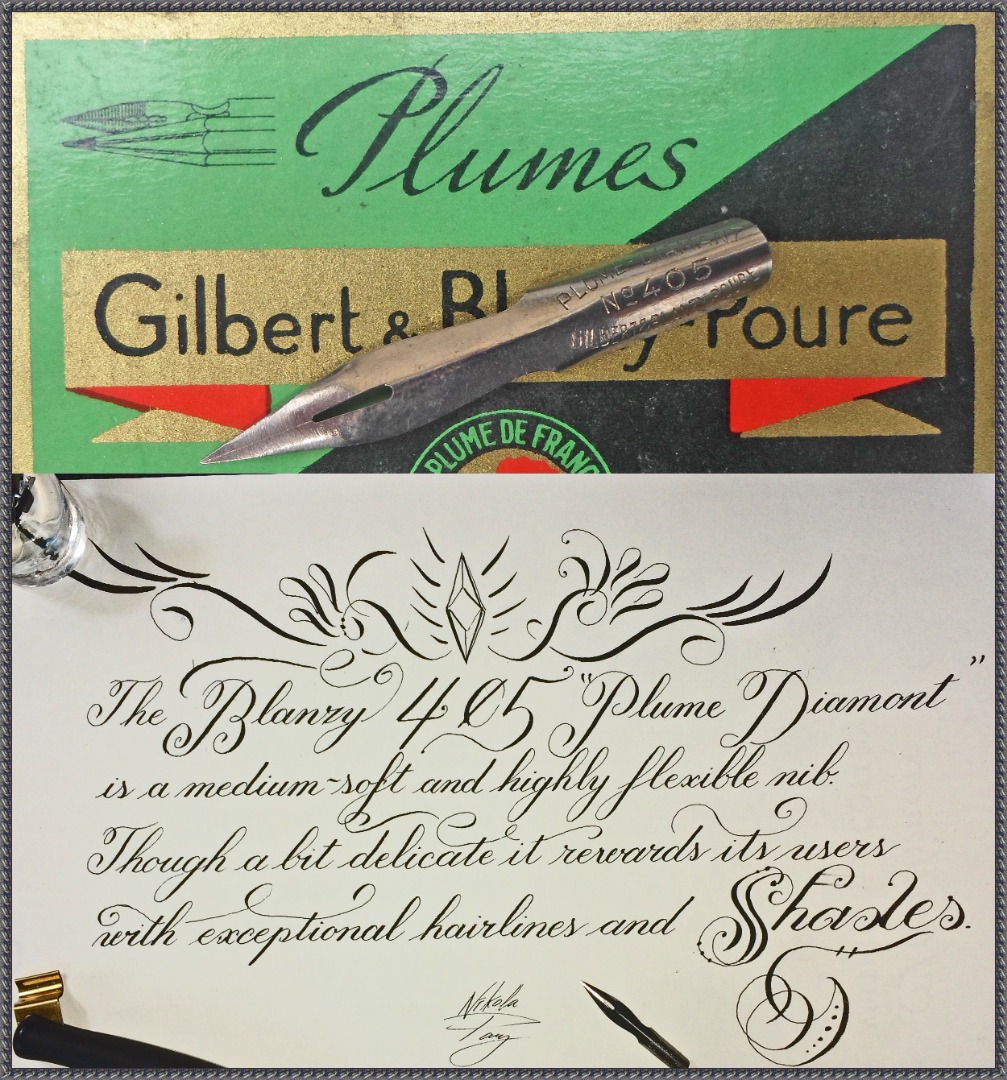 Plumes
PLUME
Nº405
Gilbert & Bl y-Poure
PLUME DE FRANC
The Blanzy 4Ø5 "Plume Diamont"
is a medium-soft and highly flexible nib.
Though a bit delicate it rewards its users
with exceptional hairlines and Shades.
Nikola